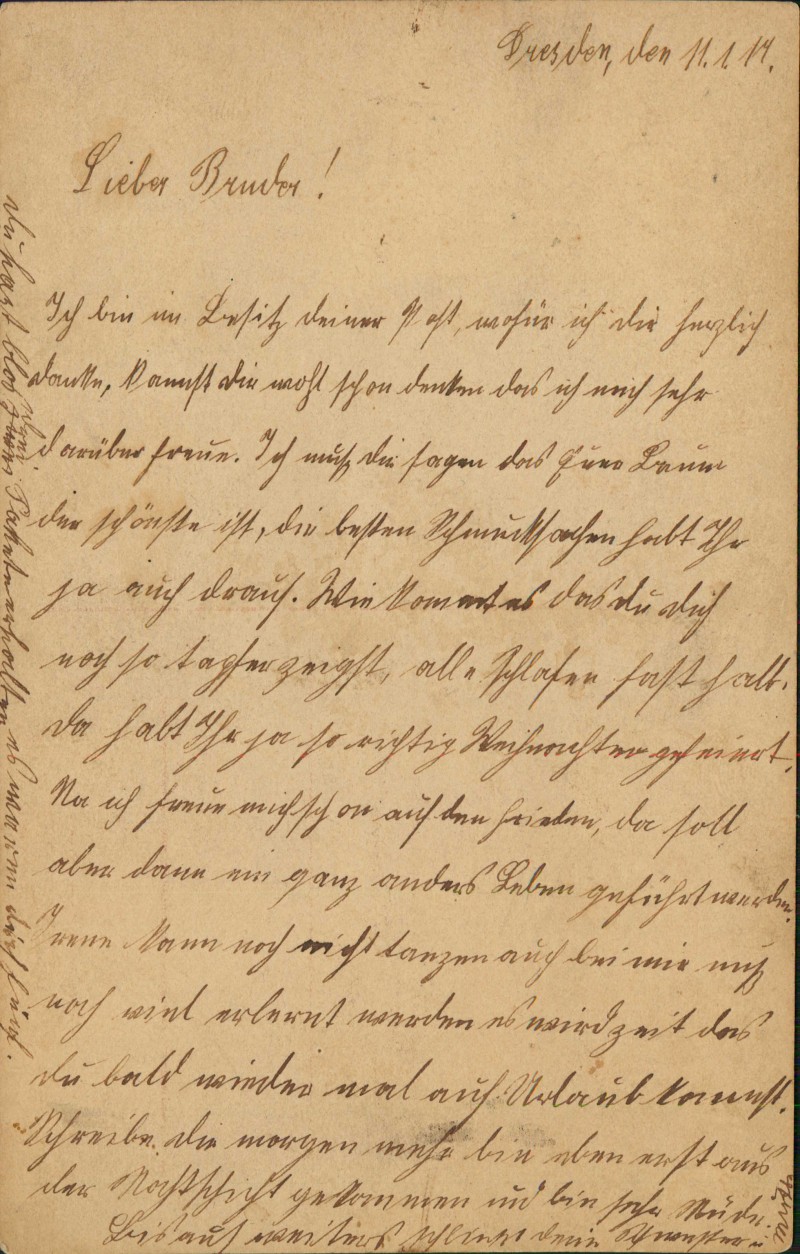 Dresden, den 11.1.17.
Lieber Bruder!
Ich bin im Besitz deiner Post, wofür ich dir herzlich
danke, kannst dir wohl schon denken das ich mich sehr
darüber freue. Ich muß dir sagen das Euer Baum
der schönste ist, die besten Schmucksachen habt Ihr
ja auch drauf. Wie kommt es das du dich
noch so tapfer zeigst, alle schlafen fast halb.
Da habt Ihr ja so richtig Weihnachten gefeiert.
Na ich freue mich schon auf den Frieden, da soll
aber dann ein ganz anders Leben geführt werden.
Irene kann noch nicht tanzen auch bei mir muß
noch viel erlernt werden es wird zeit das
du bald wieder mal auf Urlaub kommst.
Schreibe dir morgen mehr bin eben erst aus
der Nachtschicht gekommen und bin sehr Müde.
Bis auf weiteres schließt deine Schwester
du hast blos Pakete erhalten